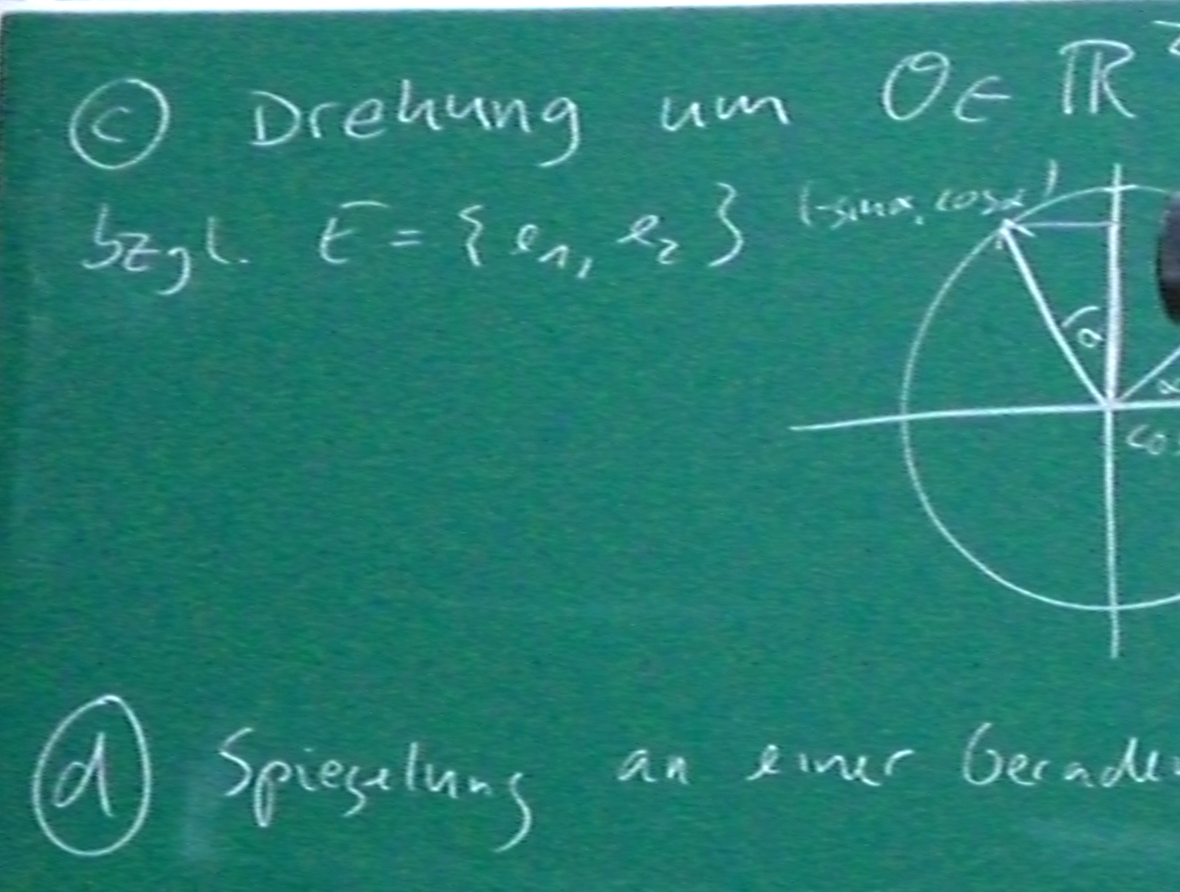 ⓒ Drehung um O ∈ ℝ²
bzgl. E = {e₁, e₂}
(-sinα, cosα)
α
α
cos
ⓓ Spiegelung an einer Geraden